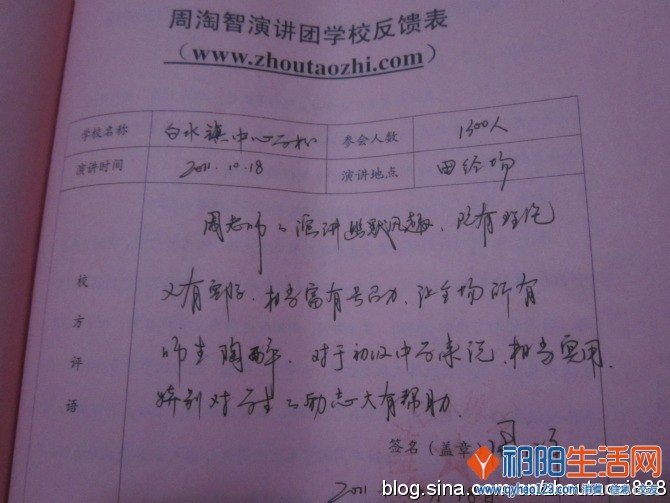 周淘智演讲团学校反馈表
(www.zhoutaozhi.com)
学校名称 白水镇中心学校 参会人数 1300人
演讲时间 2011.10.18 演讲地点 田径场
校方评语
周老师的演讲幽默风趣，既有理论
又有实际，相当富有号召力，让全场所有
师生陶醉。对于初级中学来说，相当实用，
特别对学生的励志大有帮助。
签名（盖章）
2011
祁阳生活网
www.qyhen123.com
blog.sina.com.cn/zhoutaozi888